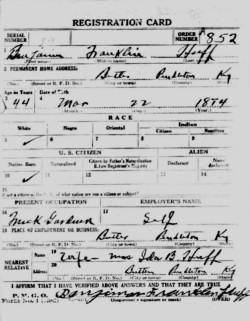 REGISTRATION CARD
SERIAL NUMBER
ORDER NUMBER 852
Benjamin Franklin Huff
2 PERMANENT HOME ADDRESS:
Butler Pendleton Ky
Age in Years
Date of Birth
44 Mar 22 1874
RACE
White
Negro
Oriental
Indian
U. S. CITIZEN
ALIEN
Native Born
Naturalized
Citizen by Father's Naturalization
Before Registrant's Majority
Declarant
If not a citizen of the U. S., of what nation are you a citizen or subject?
PRESENT OCCUPATION
EMPLOYER'S NAME
Truck Gardener Self
PLACE OF EMPLOYMENT OR BUSINESS:
Butler Pendleton Ky
NEAREST RELATIVE
Name
Wife - Mrs Ida B. Huff
Address
Butler Pendleton Ky
I AFFIRM THAT I HAVE VERIFIED ABOVE ANSWERS AND THAT THEY ARE TRUE
P. M. G. O.
Benjamin Franklin Huff